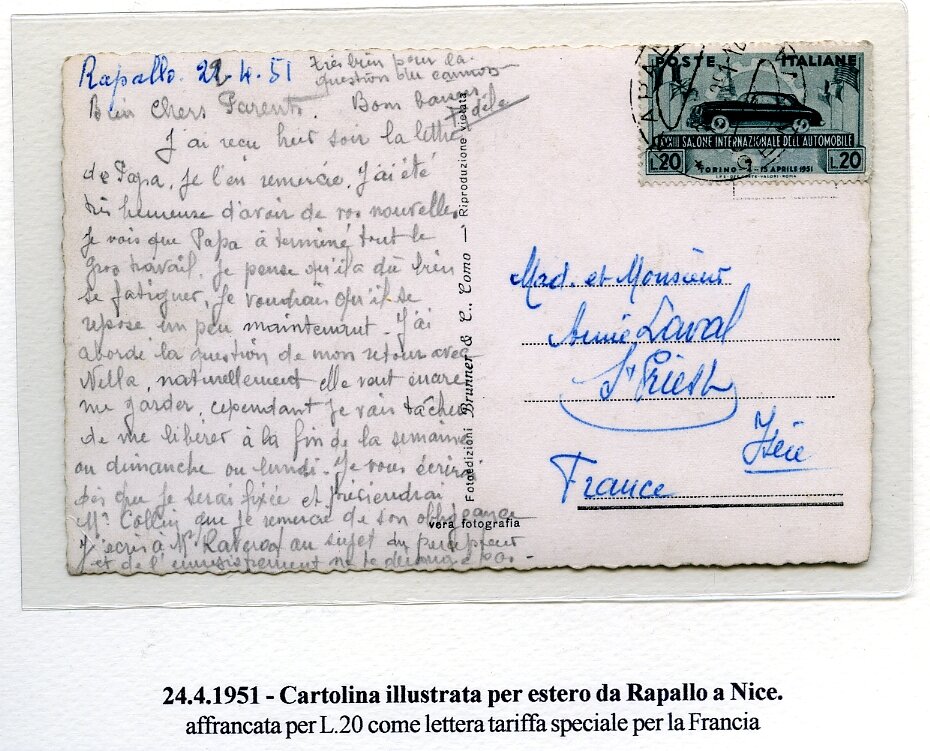 Rapallo. 22.4.51
très bien pour la
question du camion
Bien Chers Parents. Bons baisers
J'ai reçu hier soir la lettre
de Papa. Je l'en remercie. J'ai été
très heureuse d'avoir de vos nouvelles.
Je vois que Papa à terminé tout le
gros travail. Je pense qu'il a dû bien
se fatiguer, je voudrais qu'il se
repose un peu maintenant. J'ai
abordé la question de mon retour avec
Nella, naturellement elle veut encore
me garder, cependant je vais tâcher
de me libérer à la fin de la semaine
ou dimanche ou lundi. Je vous écrirai
dès que je serai fixée et préviendrai
Mr que je remercie de son obligeance
J'écris à Mr au sujet du percepteur
et de ne te dérange pas.
Fotoedizioni Brunner & C., Como — Riproduzione vietata
vera fotografia
POSTE ITALIANE
XXXIII SALONE INTERNAZIONALE DELL'AUTOMOBILE
L.20 L.20
TORINO - 15 APRILE 1951
Mad. et Monsieur
Laval
St Priest
Isère
France
24.4.1951 - Cartolina illustrata per estero da Rapallo a Nice.
affrancata per L.20 come lettera tariffa speciale per la Francia